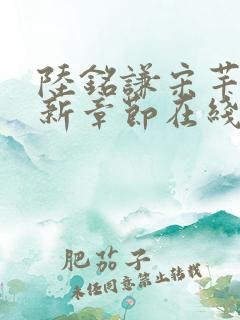 陸銘謙宋芊
新章節在綫
肥茄子
未經同意禁止轉載